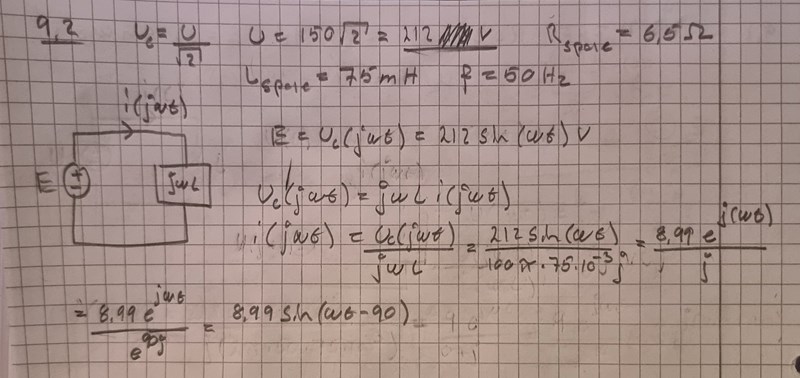 9,2 U_c = U/√2 U = 150√2 = 212 V R_spole = 6,5 Ω
L_spole = 75 mH f = 50 Hz
i(jωt)
E = U_c(jωt) = 212 sin(ωt) V
E ± jωL
U_c(jωt) = jωL i(jωt)
i(jωt) = U_c(jωt)/jωL = 212 sin(ωt)/100π·75·10^-3 j = 8,99 e^j(ωt)/j
= 8,99 e^jωt/e^90j = 8,99 sin(ωt-90)